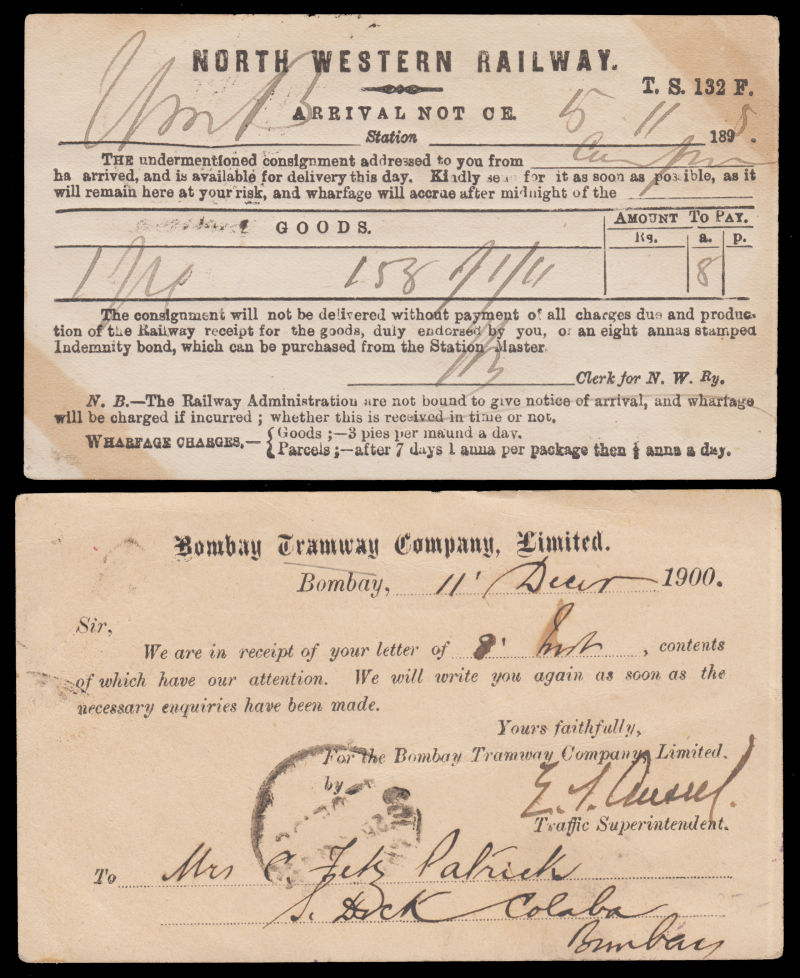 NORTH WESTERN RAILWAY.
T. S. 132 F.
ARRIVAL NOT CE.
15 11 1898.
Station
THE undermentioned consignment addressed to you from
ha arrived, and is available for delivery this day. Kindly sen for it as soon as pos ible, as it
will remain here at your risk, and wharfage will accrue after midnight of the
GOODS.
AMOUNT TO PAY.
Rs. a. p.
1 158 11/11 8
The consignment will not be delivered without payment of all charges due and produc-
tion of the Railway receipt for the goods, duly endorsed by you, or an eight annas stamped
Indemnity bond, which can be purchased from the Station Master
Clerk for N. W. Ry.
N. B.—The Railway Administration are not bound to give notice of arrival, and wharfage
will be charged if incurred ; whether this is received in time or not.
WHARFAGE CHARGES,— { Goods ;—3 pies per maund a day.
Parcels ;—after 7 days 1 anna per package then ½ anna a day.
Bombay Tramway Company, Limited.
Bombay, 11' Decer 1900.
Sir,
We are in receipt of your letter of 8' Inst, contents
of which have our attention. We will write you again as soon as the
necessary enquiries have been made.
Yours faithfully,
For the Bombay Tramway Company, Limited.
by
Traffic Superintendent.
To Mrs C. Fitz Patrick
S. Dock Colaba
Bombay